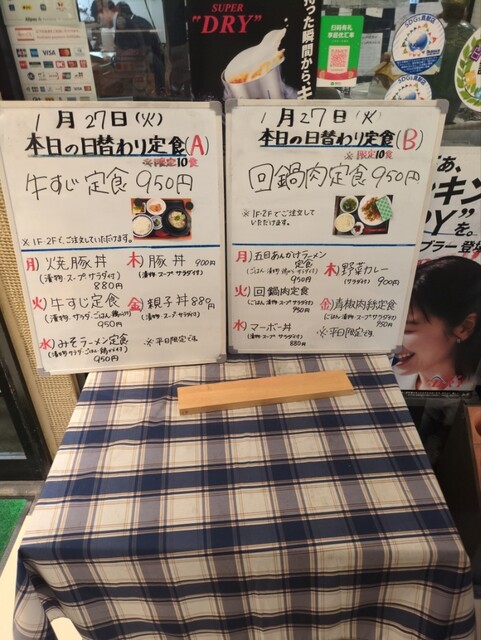 SUPER
"DRY"
1月27日(火)
本日の日替わり定食(A)
※限定10食
牛すじ定食 950円
※1F・2Fでご注文していただけます。
月) 焼豚丼
(漬物・スープ・サラダ付)
880円
火) 牛すじ定食
950円
水) みそラーメン定食
950円
木) 豚丼 900円
(漬物・スープ・サラダ付)
金) 親子丼 880円
(漬物・スープ・サラダ付)
※平日限定です。
1月27日(火)
本日の日替わり定食(B)
※限定10食
回鍋肉定食 950円
※1F・2Fでご注文して
いただけます。
月) 五目あんかけラーメン
定食
950円
火) 回鍋肉定食
(ごはん・漬物・スープ・サラダ付)
950円
水) マーボー丼
(漬物・スープ・サラダ付)
880円
木) 野菜カレー
(サラダ付) 900円
金) 青椒肉絲定食
(ごはん・漬物・スープ・サラダ付)
950円
※平日限定です。